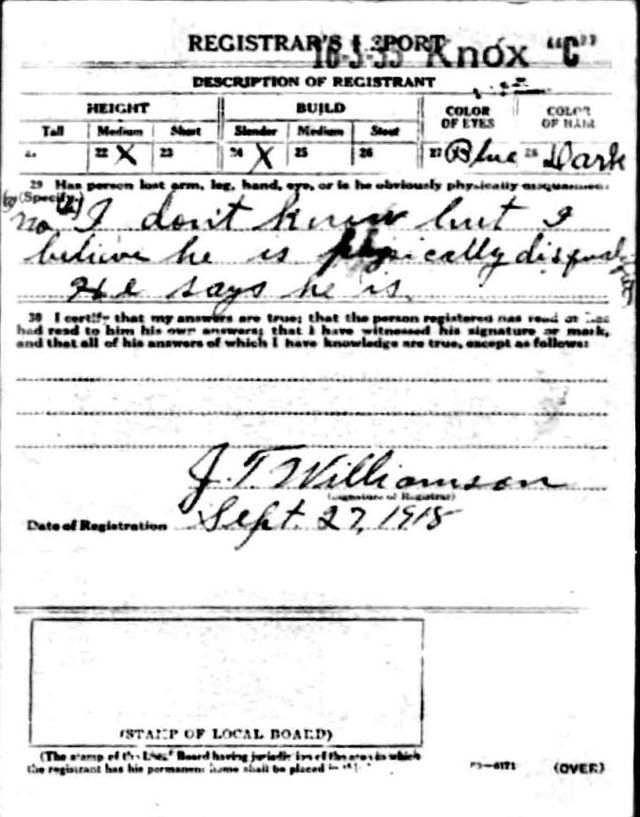 REGISTRAR'S REPORT
16-3-35 Knox "C"
DESCRIPTION OF REGISTRANT
HEIGHT BUILD COLOR OF EYES COLOR OF HAIR
Tall Medium Short Slender Medium Stout
21 22 X 23 24 X 25 26 27 Blue 28 Dark
29 Has person lost arm, leg, hand, eye, or is he obviously physically disqualified?
(Specify)
No I don't know but I
believe he is physically disqual
He says he is
30 I certify that my answers are true; that the person registered has read or has
had read to him his own answers; that I have witnessed his signature or mark,
and that all of his answers of which I have knowledge are true, except as follows:
J. T. Williamson
(Signature of Registrar)
Date of Registration Sept. 27, 1918
(STAMP OF LOCAL BOARD)
(The stamp of the Local Board having jurisdiction of the area in which
the registrant has his permanent home shall be placed in
—6171 (OVER)